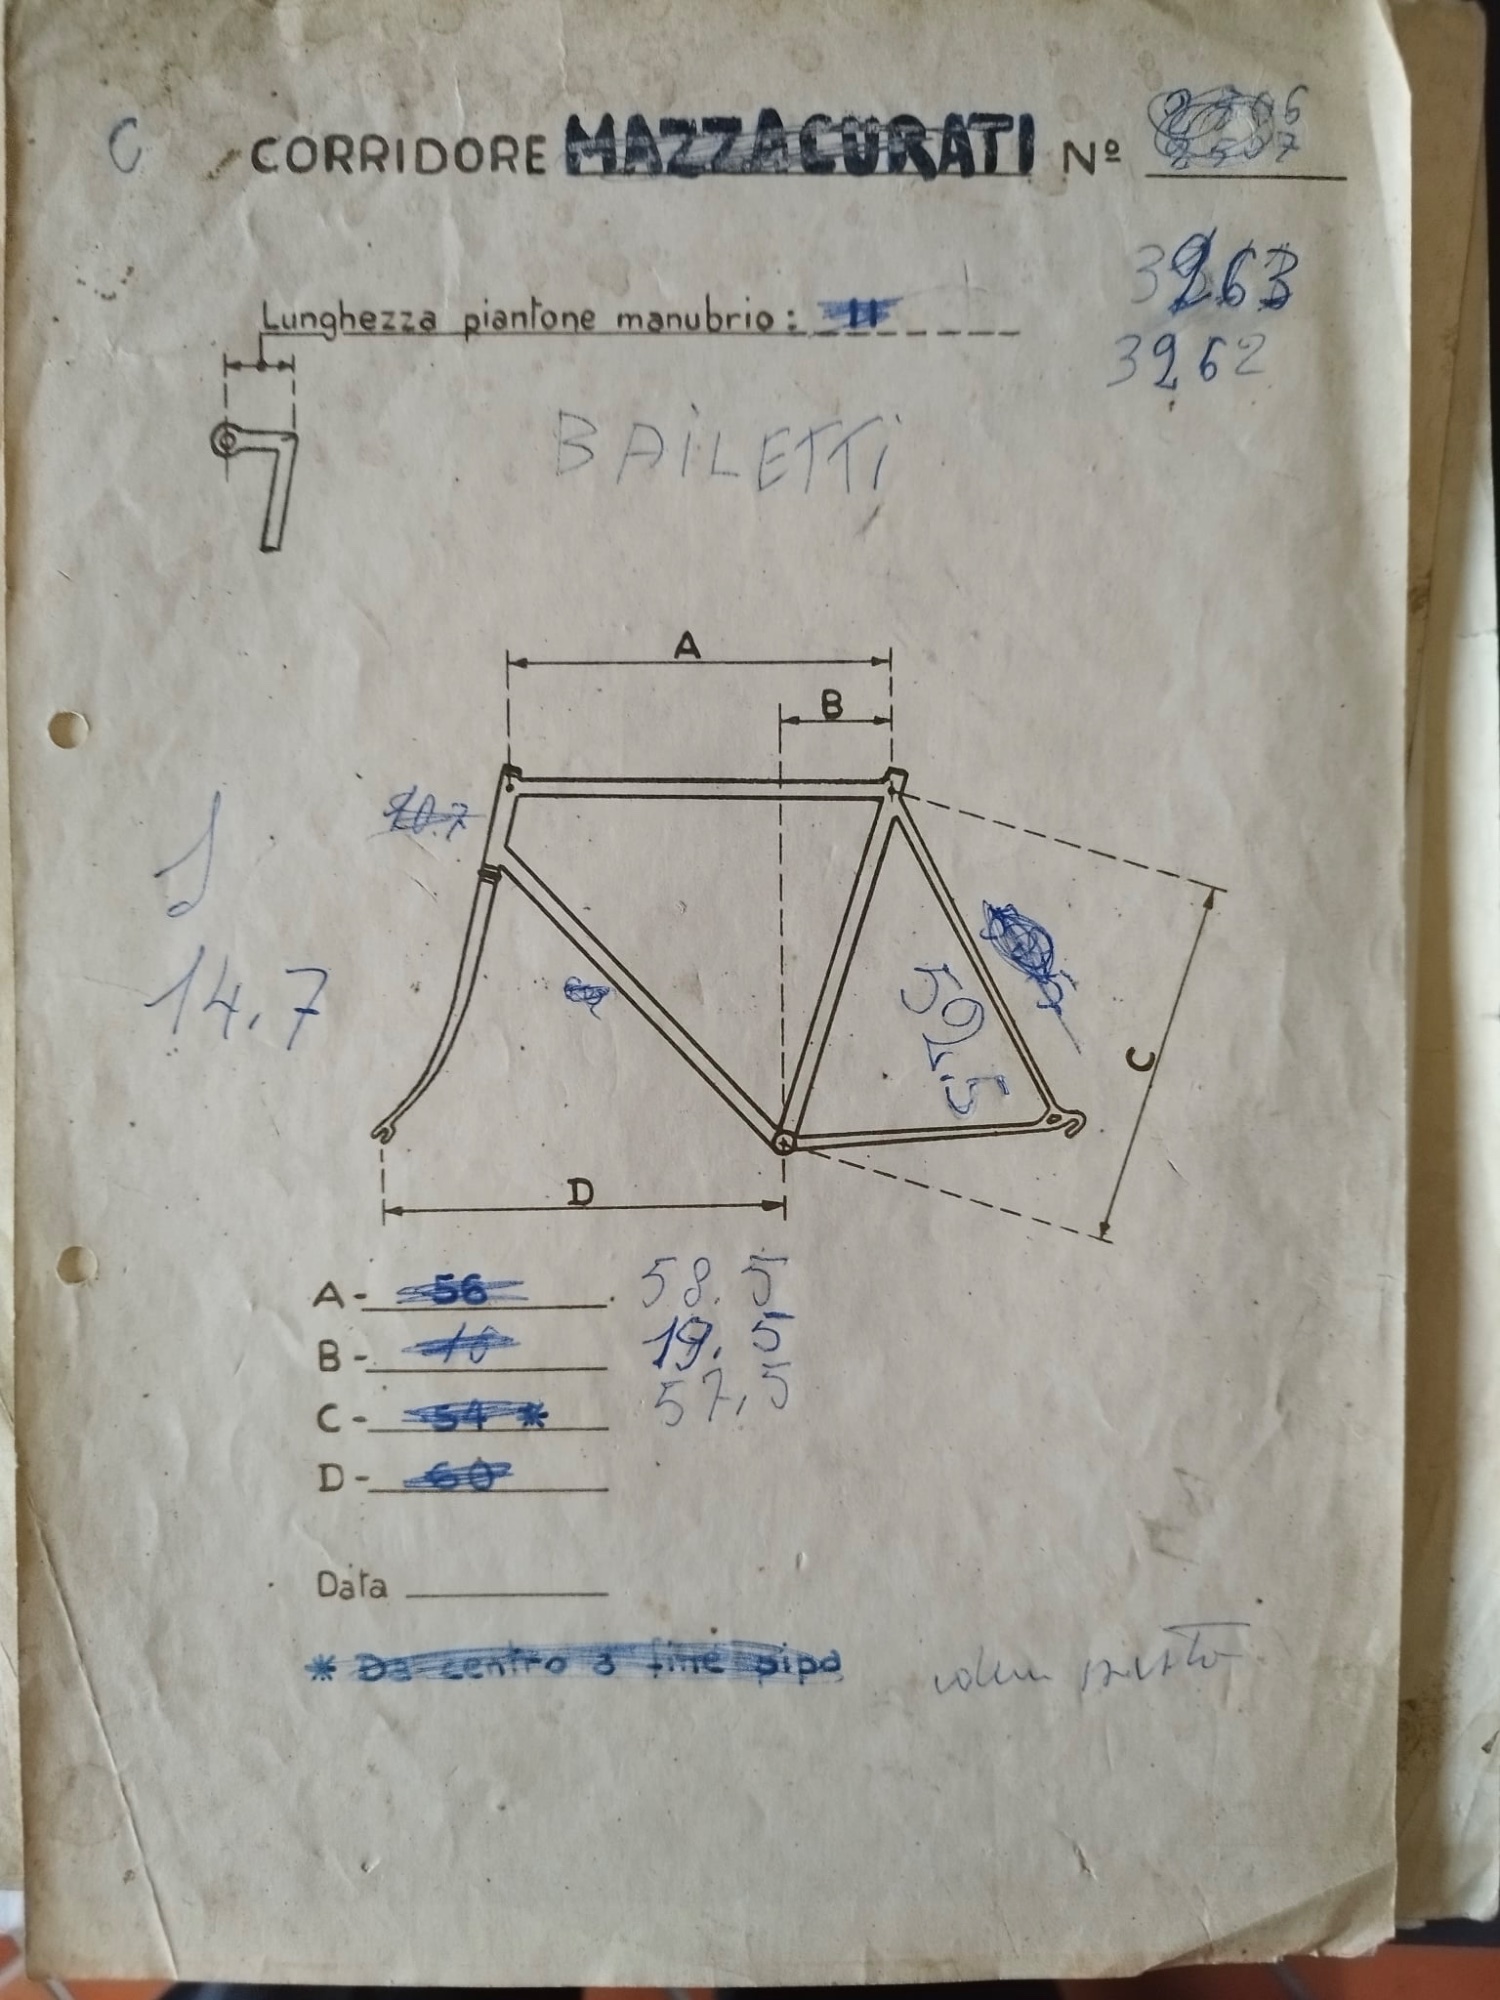 C
CORRIDORE MAZZACURATI Nº
3263
Lunghezza piantone manubrio: 11
3262
BAILETTI
A
B
20.7
J
14.7
592.5
5
C
D
A- 56 58.5
B- 10 19.5
C- 54 * 57,5
D- 60
Data
* Da centro a fine pipa